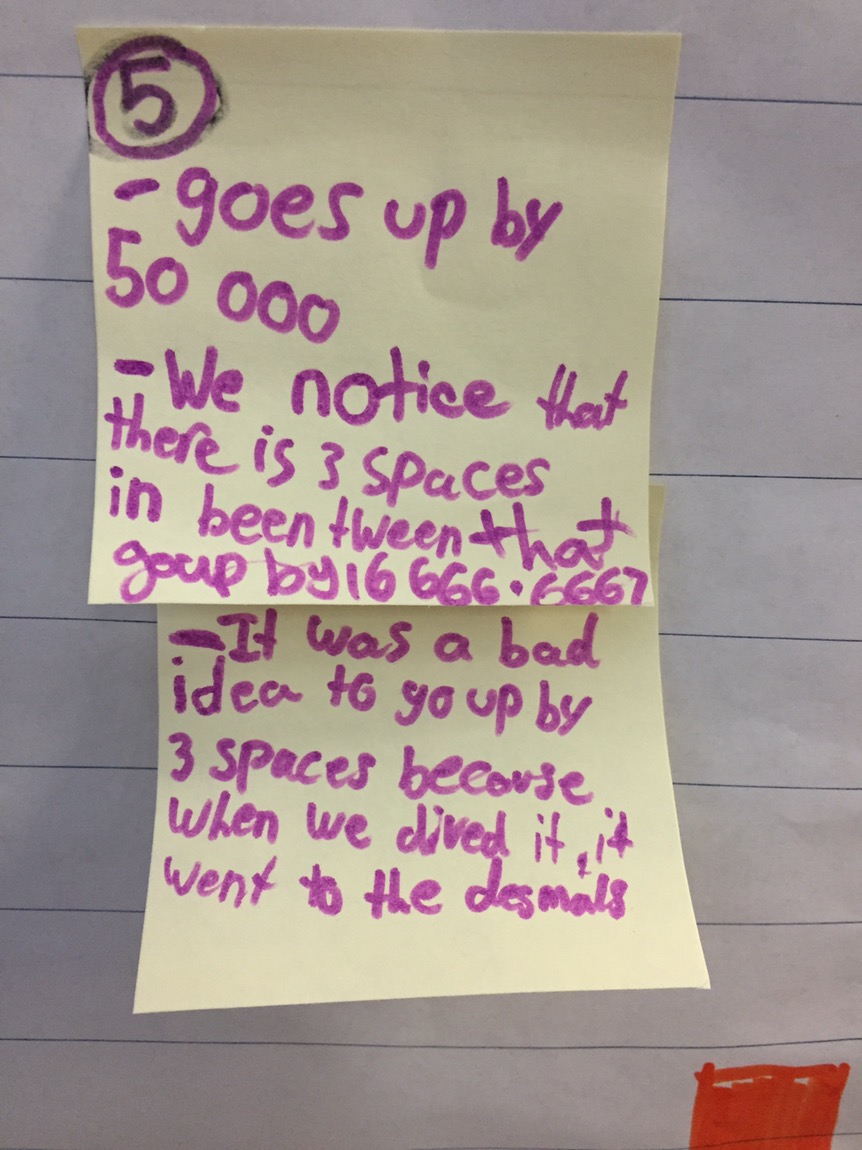 5
- goes up by
50 000
- We notice that
there is 3 spaces
in been tween that
goup by 16 666.6667
- It was a bad
idea to go up by
3 spaces becouse
when we dived it, it
went to the desmals